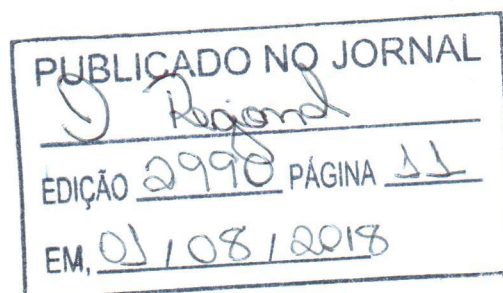 PUBLICADO NO JORNAL
O Regional
EDIÇÃO 2990 PÁGINA 11
EM, 01 / 08 / 2018